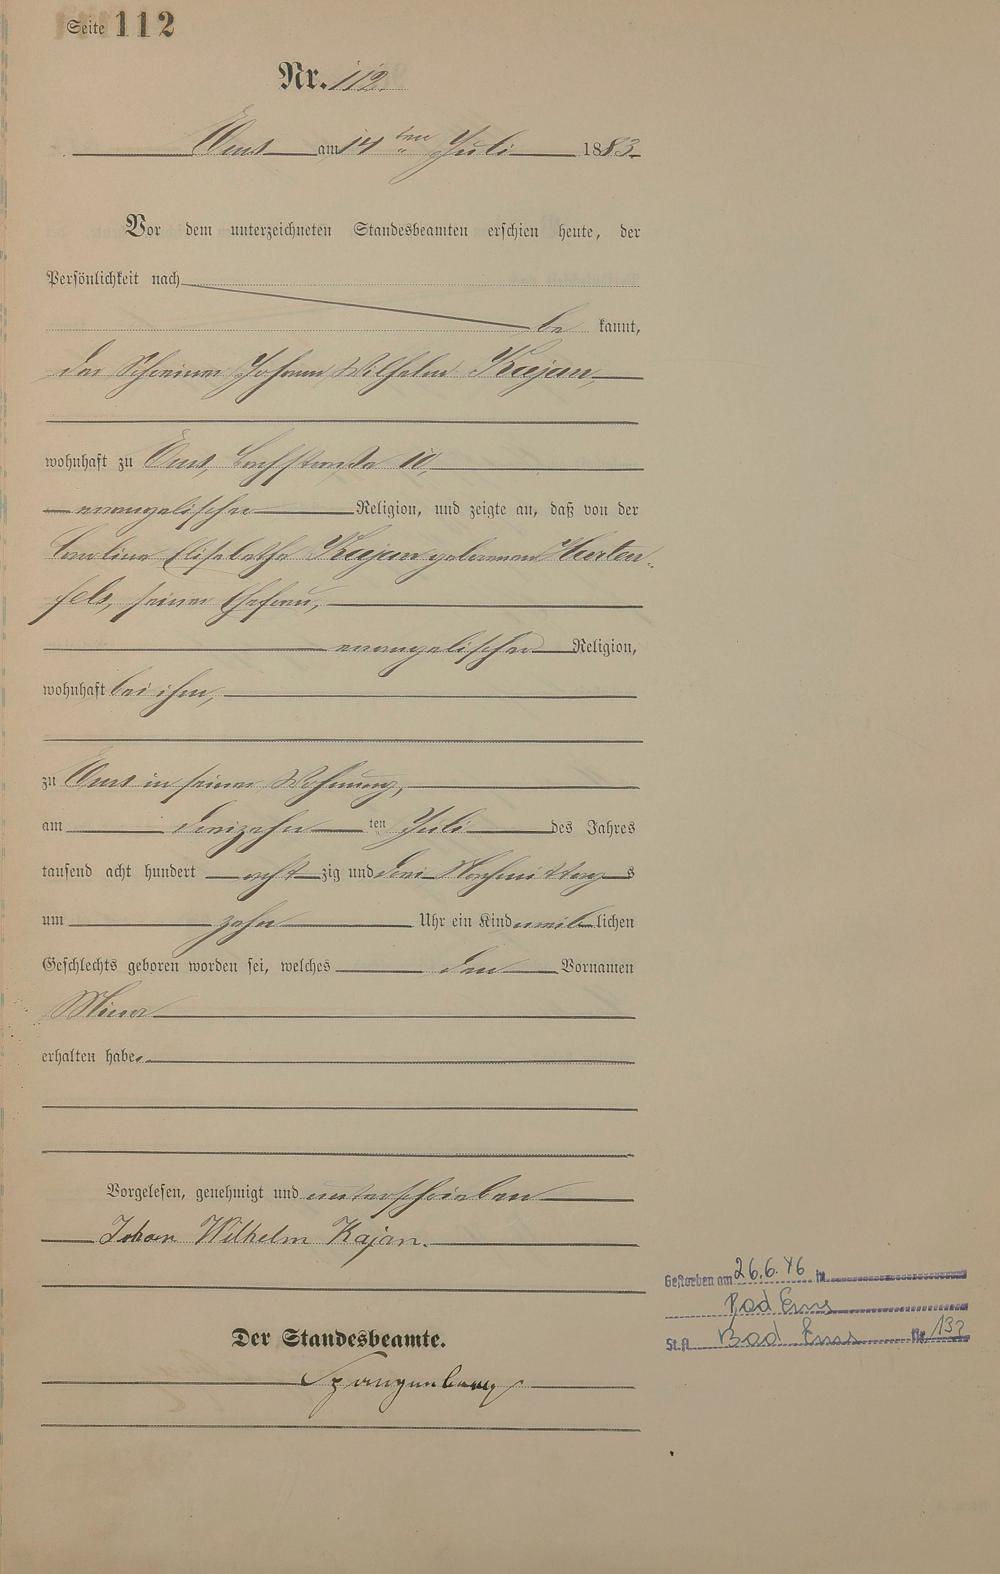 Seite 112
Nr. 112.
Ems am 14 ten Juli 1883.
Vor dem unterzeichneten Standesbeamten erschien heute, der
Persönlichkeit nach
be kannt,
der Schreiner Johann Wilhelm Kajan,
wohnhaft zu Ems, Bachstraße 10,
evangelischer Religion, und zeigte an, daß von der
Caroline Elisabethe Kajan geborenen Harten-
fels, seiner Ehefrau,
evangelischer Religion,
wohnhaft bei ihm,
zu Ems in seiner Wohnung,
am dreizehn ten Juli des Jahres
tausend acht hundert acht zig und drei Nachmittag s
um zehn Uhr ein Kind weib lichen
Geschlechts geboren worden sei, welches den Vornamen
Mina
erhalten habe.
Vorgelesen, genehmigt und unterschrieben
Johan Wilhelm Kajan.
Der Standesbeamte.
Spangenberg
Gestorben am 26.6.46 in
Bad Ems
St.A. Bad Ems Nr. 132